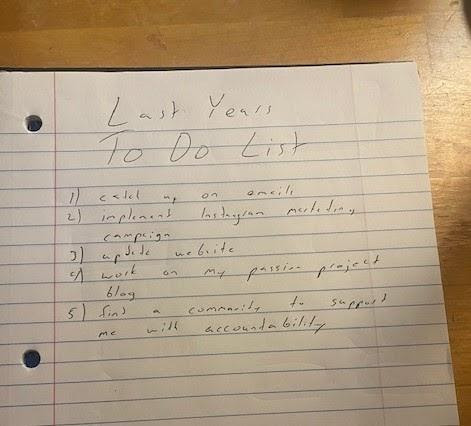 Last Years
To Do List
1) catch up on emails
2) implement Instagram marketing
campaign
3) update website
4) work on my passion project
blog
5) find a community to support
me with accountability